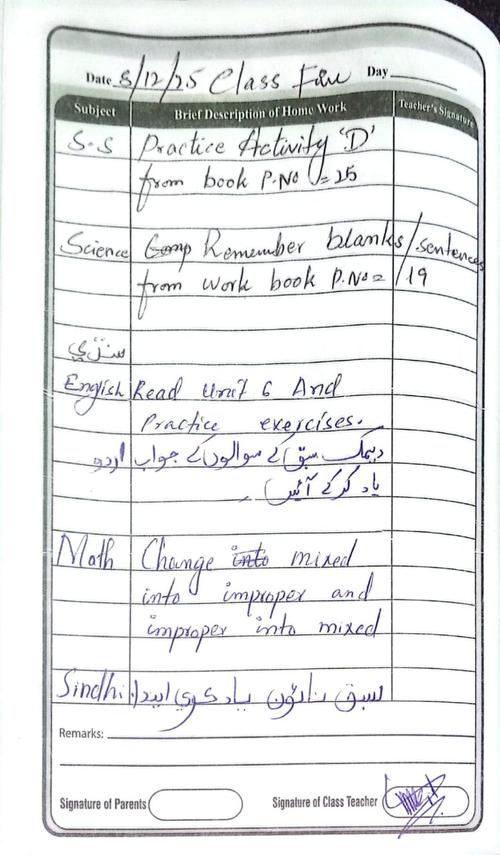 Date 8/12/25 Class Five Day
Subject Brief Description of Home Work Teacher's Signature
S.S Practice Activity 'D'
from book P.No = 25
Science Comp Remember blanks/sentences
from work book P.No = 19
سنڌي
English Read Unit 6 And
Practice exercises.
اردو دیمک سبق کے سوالوں کے جواب
یاد کر کے آئیں۔
Math Change into mixed
into improper and
improper into mixed
Sindhi سبق ياد ڪري
Remarks:
Signature of Parents Signature of Class Teacher